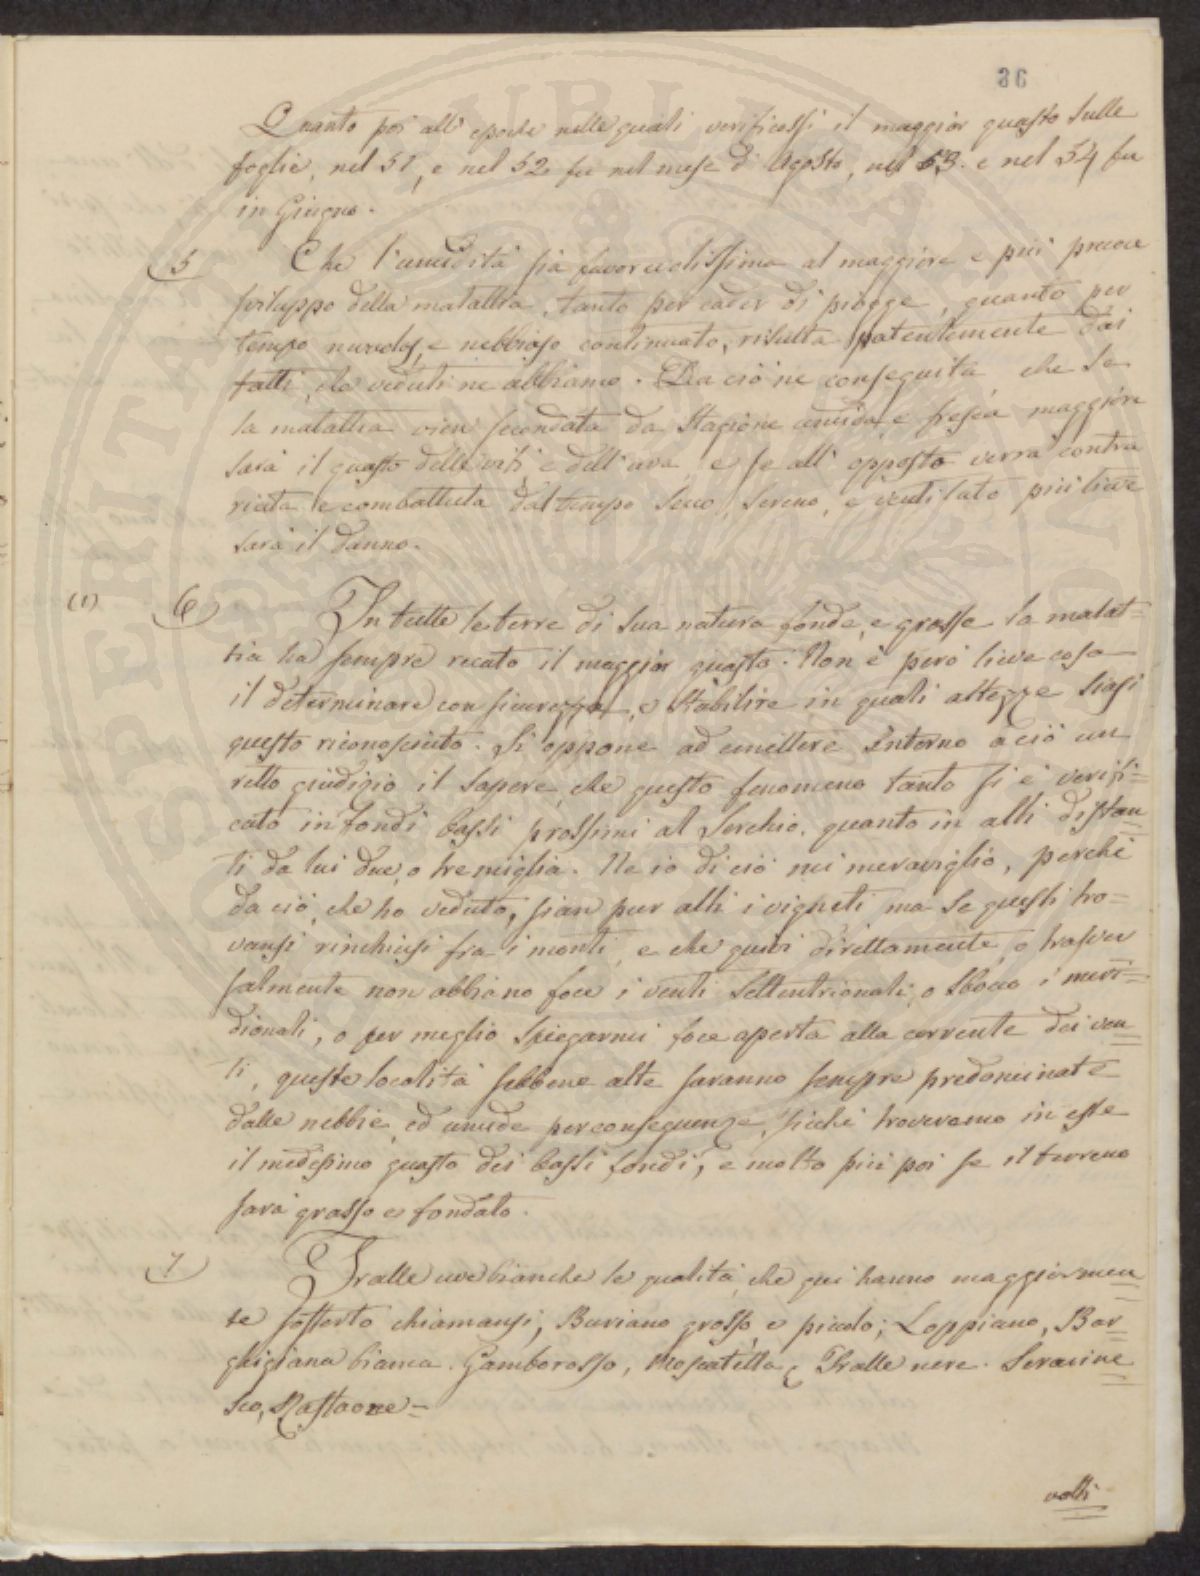 36
Quanto poi all' epoche nelle quali verificossi il maggior guasto sulle
foglie, nel 51, e nel 52 fu nel mese di Agosto, nel 53. e nel 54 fu
in Giugno.
5 Che l'umidità sia favorevolissima al maggiore e più precoce
sviluppo della malattia, tanto per cader di piogge, quanto per
tempo nuvoloso, e nebbioso continuato, risulta patentemente dai
fatti, che veduti ne abbiamo. Da ciò ne conseguita, che se
la malattia vien secondata da stagione umida, e fresca maggiore
sarà il guasto delle viti, e dell' uva, e se all' opposto verrà contra
riata e combattuta dal tempo secco, sereno, e ventilato più lieve
sarà il danno.
(1) 6 In tutte le terre di sua natura fonde, e grosse la malat=
tia ha sempre recato il maggior guasto. Non è però lieve cosa
il determinare con sicurezza, e stabilire in quali altezze siasi
questo riconosciuto. Si oppone ad emittere intorno a ciò un
retto giudizio il sapere, che questo fenomeno tanto si è verifi=
cato in fondi bassi prossimi al Serchio, quanto in alti distan=
ti da lui due, o tre miglia. Ne io di ciò mi meraviglio, perchè
da ciò, che ho veduto, sian pur alti i vigneti ma se questi tro=
vansi rinchiusi fra i monti, e che quivi direttamente, o trasver
salmente non abbiano foce i venti settentrionali, o sbocco i meri=
dionali, o per meglio spiegarmi foce aperta alla corrente dei ven=
ti, queste località sebbene alte saranno sempre predominate
dalle nebbie, ed umide per conseguenza, sicchè troveremo in esse
il medesimo guasto dei bassi fondi, e molto più poi se il terreno
sarà grasso e fondato.
7 Fralle uve bianche le qualità, che qui hanno maggiormen=
te sofferto chiamansi, Buriano grosso, e piccolo; Loppiano, Bar=
ghigiana bianca. Gamborosso, Moscatella, Fralle nere. Seracine=
sco, Rastaone=
volti